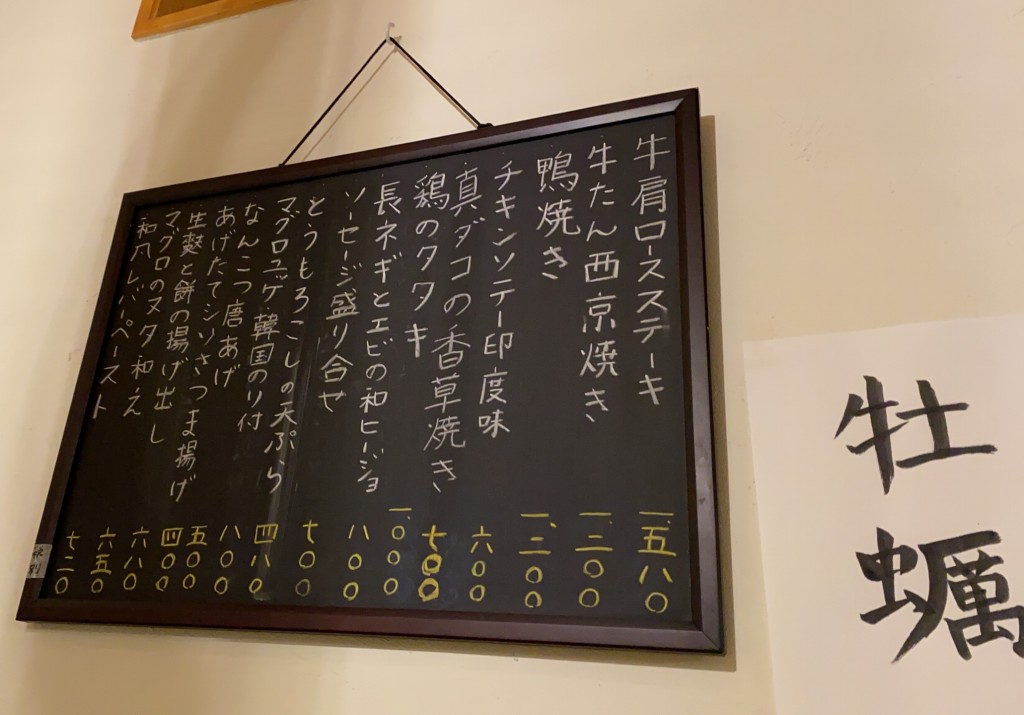 牛肩ロースステーキ 一、五八〇
牛たん西京焼き 一、二〇〇
鴨焼き 一、二〇〇
チキンソテー印度味 六〇〇
真ダコの香草焼き 七〇〇
鶏のタタキ 一、〇〇〇
長ネギとエビの和ヒージョ 八〇〇
ソーセージ盛り合せ 七〇〇
とうもろこしの天ぷら 四八〇
マグロユッケ韓国のり付 八〇〇
なんこつ唐あげ 五〇〇
あげたてシソさつま揚げ 四〇〇
生麩と餅の揚げ出し 六八〇
マグロのヌタ和え 六五〇
和風レバーペースト 七二〇
牡蠣